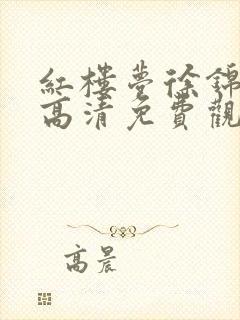 紅樓夢徐錦
高清免費觀
高晨